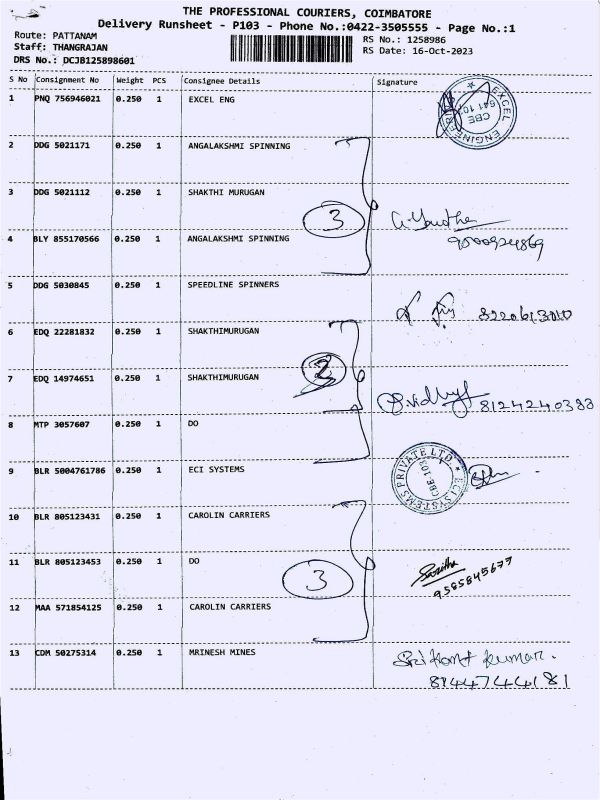 THE PROFESSIONAL COURIERS, COIMBATORE
Delivery Runsheet - P103 - Phone No.:0422-3505555 - Page No.:1
Route: PATTANAM
Staff: THANGRAJAN
DRS No.: DCJB125898601
RS No.: 1258986
RS Date: 16-Oct-2023
S No Consignment No Weight PCS Consignee Details Signature
1 PNQ 756946021 0.250 1 EXCEL ENG
EXCEL ENGINEERS CBE 641 103
2 DDG 5021171 0.250 1 ANGALAKSHMI SPINNING
3 DDG 5021112 0.250 1 SHAKTHI MURUGAN
3
4 BLY 855170566 0.250 1 ANGALAKSHMI SPINNING
9500924869
5 DDG 5030845 0.250 1 SPEEDLINE SPINNERS
6 EDQ 22281832 0.250 1 SHAKTHIMURUGAN
2
7 EDQ 14974651 0.250 1 SHAKTHIMURUGAN
8124240388
8 MTP 3057607 0.250 1 DO
9 BLR 5004761786 0.250 1 ECI SYSTEMS
ECI SYSTEMS PRIVATE LTD CBE 103
10 BLR 805123431 0.250 1 CAROLIN CARRIERS
11 BLR 805123453 0.250 1 DO
3
9585845677
12 MAA 571854125 0.250 1 CAROLIN CARRIERS
13 CDM 50275314 0.250 1 MRINESH MINES
Srikant kumar.
8144744181